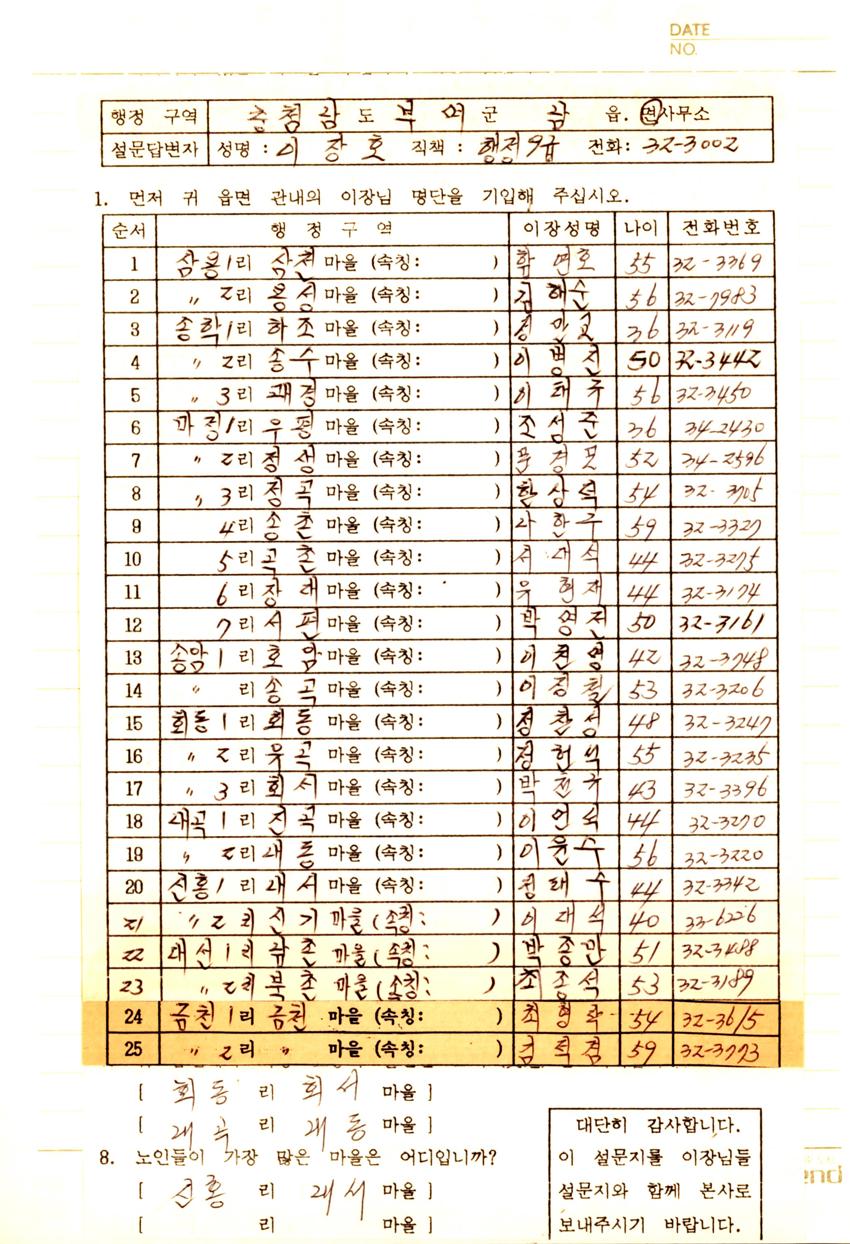 DATE
NO.
행정 구역 충청남도 부여군 남 읍. 면사무소
설문답변자 성명 : 이 장 호 직책 : 행정9급 전화: 32-3002
1. 먼저 귀 읍면 관내의 이장님 명단을 기입해 주십시오.
순서 행 정 구 역 이장성명 나이 전화번호
1 삼용1리 삼천 마을 (속칭: ) 55 32-3369
2 〃 2리 용성 마을 (속칭: ) 김 해 순 56 32-7983
3 송학1리 하조 마을 (속칭: ) 36 32-3119
4 〃 2리 송수 마을 (속칭: ) 이 병 진 50 32-3442
5 〃 3리 마을 (속칭: ) 이 56 32-3450
6 마정1리 우평 마을 (속칭: ) 조 성 준 36 34-2430
7 〃 2리 정생 마을 (속칭: ) 52 34-2596
8 〃 3리 정곡 마을 (속칭: ) 한 상 석 54 32-3705
9 4리 송촌 마을 (속칭: ) 59 32-3327
10 5리 곡촌 마을 (속칭: ) 서 대 석 44 32-3275
11 6리 장대 마을 (속칭: ) 44 32-3174
12 7리 서편 마을 (속칭: ) 박 영 50 32-3161
13 송암1리 호암 마을 (속칭: ) 이 영 42 32-3748
14 〃 리 송곡 마을 (속칭: ) 이 정 53 32-3206
15 회동1리 회동 마을 (속칭: ) 정 찬 성 48 32-3247
16 〃 2리 유곡 마을 (속칭: ) 정 헌 55 32-3235
17 〃 3리 회서 마을 (속칭: ) 박 43 32-3396
18 내곡1리 전곡 마을 (속칭: ) 이 언 석 44 32-3270
19 〃 2리 내동 마을 (속칭: ) 이 윤 수 56 32-3220
20 신홍1리 내서 마을 (속칭: ) 정 태 수 44 32-3342
21 〃 2리 신기 마을 (속칭: ) 이 대 석 40 33-6226
22 대선1리 마을 (속칭: ) 박 종 만 51 32-3488
23 〃 2리 북촌 마을 (속칭: ) 조 종 석 53 32-3189
24 금천1리 금천 마을 (속칭: ) 최 형 학 54 32-3615
25 〃 2리 〃 마을 (속칭: ) 김 겸 59 32-3773
[ 회동 리 회서 마을 ]
[ 내곡 리 내동 마을 ]
8. 노인들이 가장 많은 마을은 어디입니까?
[ 신홍 리 내서 마을 ]
[ 리 마을 ]
대단히 감사합니다.
이 설문지를 이장님들
설문지와 함께 본사로
보내주시기 바랍니다.